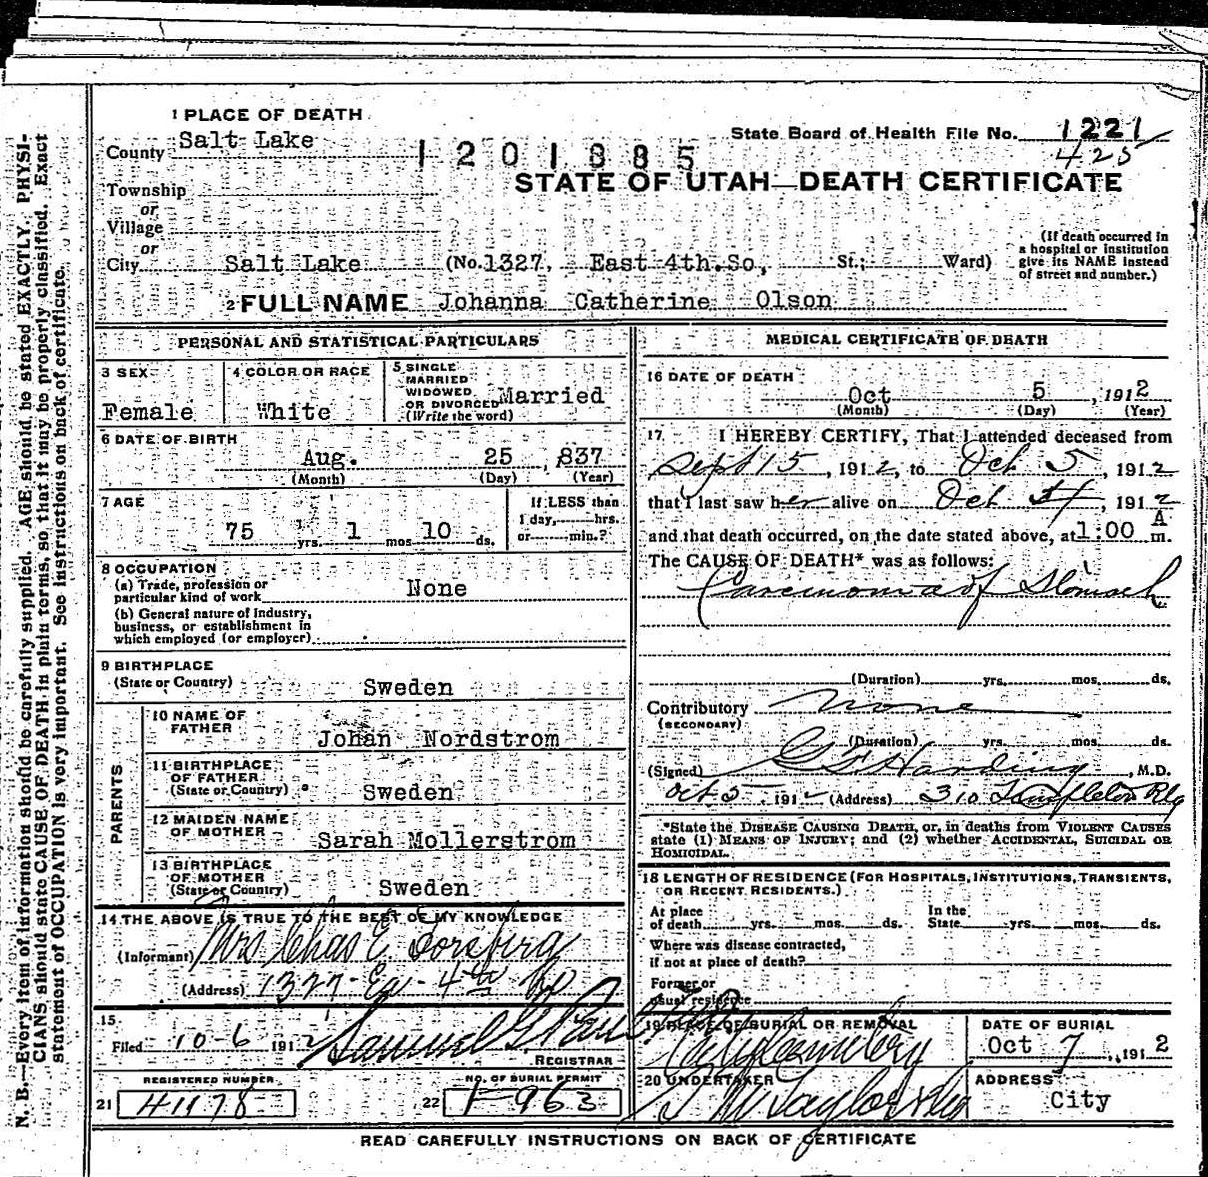 1 PLACE OF DEATH
State Board of Health File No. 1221
425
County Salt Lake
1201885
STATE OF UTAH—DEATH CERTIFICATE
Township
or
Village
or
City Salt Lake (No. 1327, East 4th.So, St.; Ward)
(If death occurred in
a hospital or institution
give its NAME instead
of street and number.)
2 FULL NAME Johanna Catherine Olson
PERSONAL AND STATISTICAL PARTICULARS
3 SEX
Female
4 COLOR OR RACE
White
5 SINGLE
MARRIED
WIDOWED
OR DIVORCED
(Write the word)
Married
6 DATE OF BIRTH
Aug. 25, 837
(Month) (Day) (Year)
7 AGE
75 yrs. 1 mos. 10 ds.
If LESS than
1 day, hrs.
or min.?
8 OCCUPATION
(a) Trade, profession or
particular kind of work None
(b) General nature of industry,
business, or establishment in
which employed (or employer)
9 BIRTHPLACE
(State or Country) Sweden
PARENTS
10 NAME OF
FATHER Johan Nordstrom
11 BIRTHPLACE
OF FATHER
(State or Country) Sweden
12 MAIDEN NAME
OF MOTHER Sarah Mollerstrom
13 BIRTHPLACE
OF MOTHER
(State or Country) Sweden
14 THE ABOVE IS TRUE TO THE BEST OF MY KNOWLEDGE
(Informant) Mrs Chas E Forsberg
(Address) 1327 Ea 4th So
15
Filed 10-6 1912 Samuel G
REGISTRAR
REGISTERED NUMBER
21 H1178
NO. OF BURIAL PERMIT
22 F963
MEDICAL CERTIFICATE OF DEATH
16 DATE OF DEATH
Oct 5, 1912
(Month) (Day) (Year)
17 I HEREBY CERTIFY, That I attended deceased from
Sept 15, 1912, to Oct 5, 1912
that I last saw her alive on Oct 4, 1912
and that death occurred, on the date stated above, at 1:00 A m.
The CAUSE OF DEATH* was as follows:
Carcinoma of Stomach
(Duration) yrs. mos. ds.
Contributory None
(SECONDARY)
(Duration) yrs. mos. ds.
(Signed) G F Harding, M.D.
Oct 5, 1912 (Address) 310 Templeton Blg
*State the DISEASE CAUSING DEATH, or, in deaths from VIOLENT CAUSES
state (1) MEANS OF INJURY; and (2) whether ACCIDENTAL, SUICIDAL OR
HOMICIDAL.
18 LENGTH OF RESIDENCE (FOR HOSPITALS, INSTITUTIONS, TRANSIENTS,
OR RECENT RESIDENTS.)
At place
of death yrs. mos. ds.
In the
State yrs. mos. ds.
Where was disease contracted,
if not at place of death?
Former or
usual residence
19 PLACE OF BURIAL OR REMOVAL
City Cemetery
DATE OF BURIAL
Oct 7, 1912
20 UNDERTAKER
S M Taylor
ADDRESS
City
READ CAREFULLY INSTRUCTIONS ON BACK OF CERTIFICATE
N. B.—Every item of information should be carefully supplied. AGE should be stated EXACTLY. PHYSI-
CIANS should state CAUSE OF DEATH in plain terms, so that it may be properly classified. Exact
statement of OCCUPATION is very important. See instructions on back of certificate.